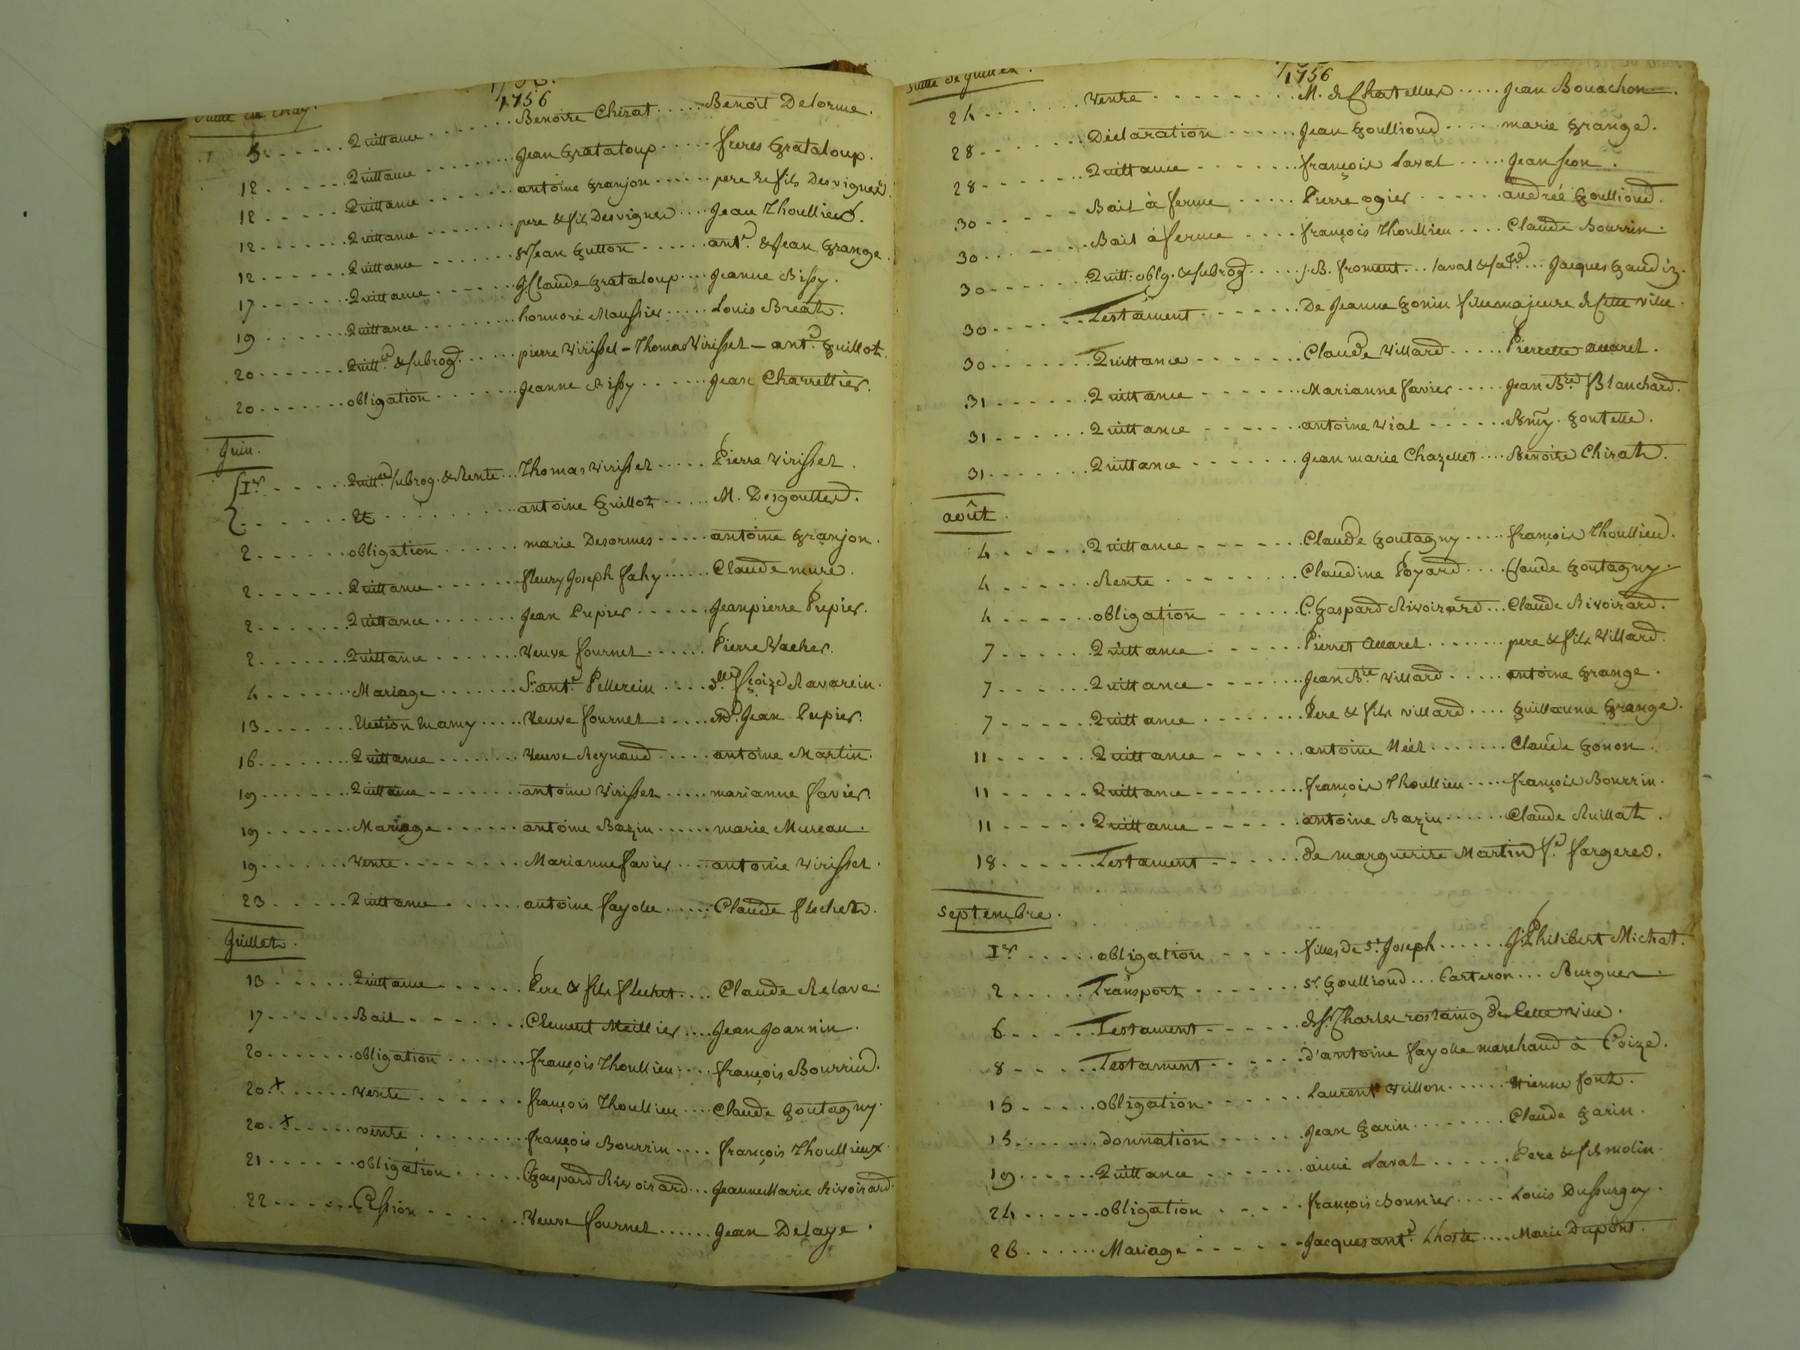 1756
Suite de May.
5 Quittance Benoîte Chirat Benoît Delorme.
12 Quittance Jean Grataloup freres Grataloup.
12 Quittance antoine Granjon pere & fils Desvignes.
12 Quittance pere & fils Desvignes Jean Thoullieux.
12 Quittance Jean Gutton antᵉ & Jean Grange.
17 Quittance Claude Grataloup Jeanne Bissy.
19 Quittance honnoré Maussier Louis Breat.
20 Quittᶜᵉ & subrog. pierre Virisset - Thomas Virisset - antᵉ Guillot.
20 obligation Jeanne Bissy Jean Charreltier.
Juin.
1ᵉʳ Quittᶜᵉ subrog. & Rente Thomas Virisset Pierre Virisset.
Et antoine Guillot M. Desgouttes.
2 obligation marie Desormes antoine Granjon.
2 Quittance fleury Joseph fahy Claude mure.
2 Quittance Jean Pupier Jean pierre Pupier.
2 Quittance Veuve fournet Pierre Vacher.
4 Mariage Sʳ antᵉ Pellerein Dˡˡᵉ fçoize Ravarein.
13 Veuve fournet Jean Pupier.
16 Quittance Veuve Reynaud antoine Martin.
19 Quittance antoine Virisset marianne favier.
19 Mariage antoine Bazin marie Mureau.
19 Vente Marianne favier antoine Virisset.
23 Quittance antoine fayolle Claude flechet.
Juillet.
13 Quittance Pere & fils flechet Claude Relave.
17 Bail Clement Meillier Jean Joannin.
20 obligation françois Thoullieu françois Bourrin.
20 x vente françois Thoullieu Claude Goutagny.
20 x vente françois Bourrin françois Thoullieux.
21 obligation Gaspard Rivoirard Jeanne Marie Rivoirard.
22 Cession Veuve fournet Jean Delaye.
1756
Suite de Juillet.
24 Vente M. de Chatellus Jean Bouachon.
28 Déclaration Jean Goullioud marie Grange.
28 Quittance françois Laval Jean Jeon.
30 Bail à ferme Pierre ogier andrée Goullioud.
30 Bail à ferme françois Thoullieu Claude Bourrin.
30 Quitt. oblig. & subrog. J. B. froment Laval & Jacques Gaudiz.
30 Testament De Jeanne Gonin fille majeure de Cette ville.
30 Quittance Claude Villard Pierrette allaret.
31 Quittance Marianne favier Jean Bᵗᵉ Blanchard.
31 Quittance antoine Vial Remy Goutelle.
31 Quittance Jean marie Chazelles Benoîte Chirat.
août.
4 Quittance Claude Goutagny françois Thoullieu.
4 Rente Claudine Poyard Claude Goutagny.
4 obligation C. Gaspard Rivoirard Claude Rivoirard.
7 Quittance Pierret allaret pere & fils Villard.
7 Quittance Jean Bᵗᵉ Villard antoine Grange.
7 Quittance Pere & fils villard Guillaume Grange.
11 Quittance antoine Néel Claude Gonon.
11 Quittance françois Thoullieu françois Bourrin.
11 Quittance antoine Bazin Claude Ruillat.
18 Testament de marguerite Martin fᵉ fargere.
Septembre.
1ᵉʳ obligation filles de Sᵗ Joseph J. Philibert Michat.
2 Transport Sʳ Goullioud Carteron Burgues.
6 Testament de Sʳ Charles rostaing de Cette ville.
8 Testament d'antoine fayolle marchand à Coize.
15 obligation Laurent Veillon Etienne font.
15 donnation Jean Garin Claude Garin.
19 Quittance aimé Laval Pere & fils molin.
24 obligation françois Bonnier Louis Dussurgey.
26 Mariage Jacques antᵉ Lhoste Marie Dupont.